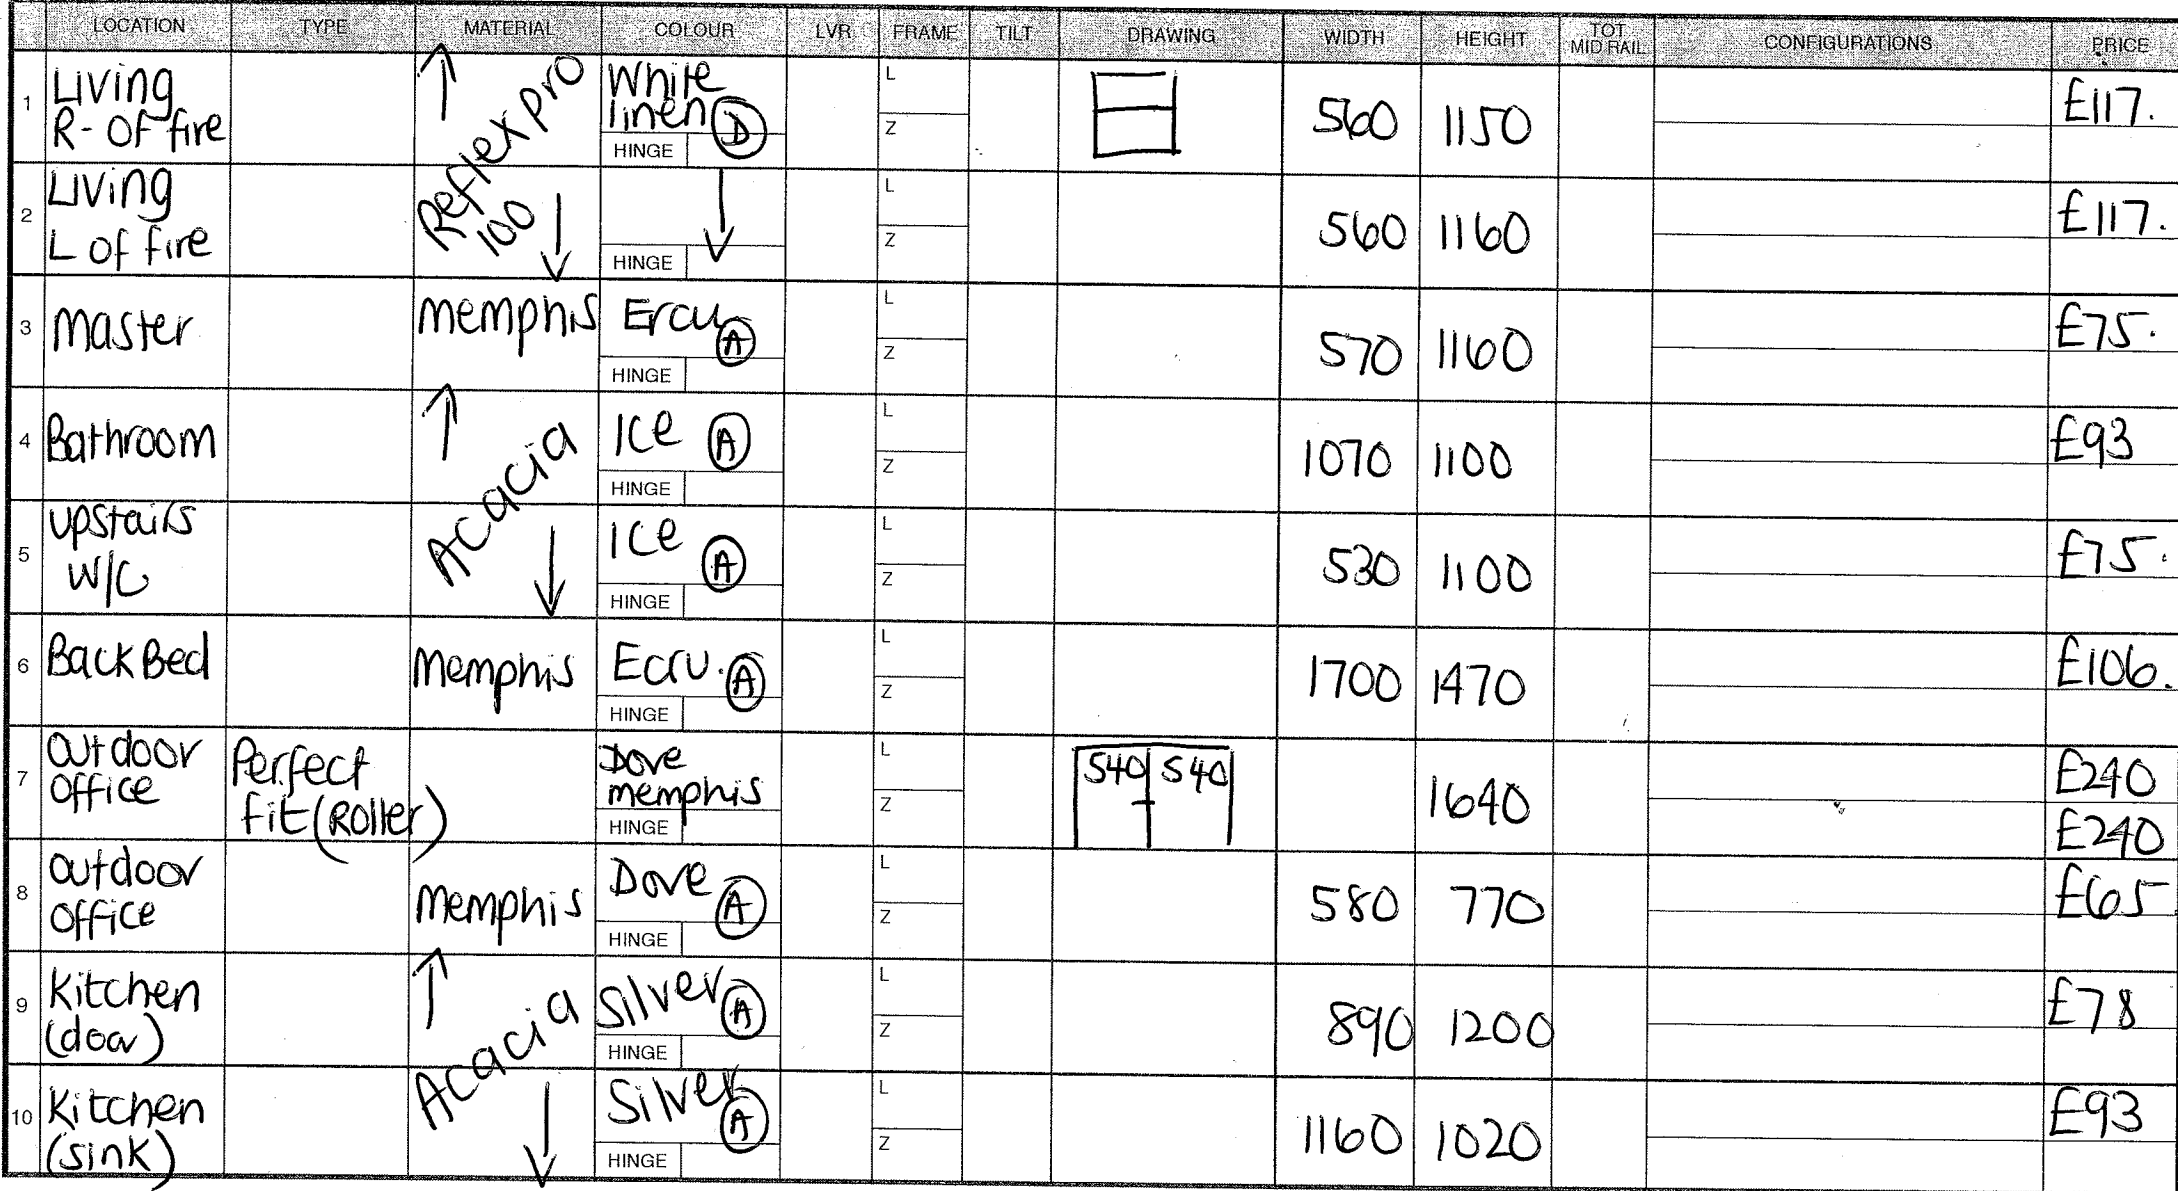 LOCATION TYPE MATERIAL COLOUR LVR FRAME TILT DRAWING WIDTH HEIGHT TOT MID RAIL CONFIGURATIONS PRICE
1 Living R- OF fire Reflex pro 100 White linen D HINGE L Z 560 1150 £117.
2 Living L OF fire HINGE L Z 560 1160 £117.
3 Master Memphis Ercu A HINGE L Z 570 1160 £75.
4 Bathroom Acacia Ice A HINGE L Z 1070 1100 £93
5 upstairs W/C Ice A HINGE L Z 530 1100 £75.
6 Back Bed Memphis Ecru. A HINGE L Z 1700 1470 £106.
7 Outdoor Office Perfect fit (Roller) Dove memphis HINGE L Z 540 540 1640 £240 £240
8 Outdoor Office Memphis Dove A HINGE L Z 580 770 £65
9 Kitchen (door) Acacia Silver A HINGE L Z 890 1200 £78
10 Kitchen (sink) Silver A HINGE L Z 1160 1020 £93